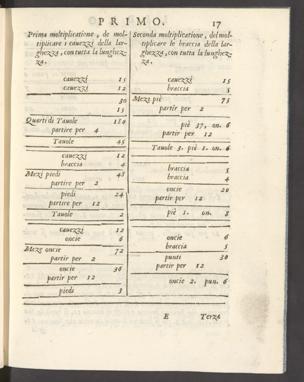 PRIMO. 17
Prima moltiplicatione, de mol-
tiplicare i cauezzi della lar-
ghezza, con tutta la lunghez-
za.
cauezzi 15
cauezzi 12
30
15
Quarti di Tauole 180
partire per 4
Tauole 45
cauezzi 12
braccia 4
Mezi piedi 48
partire per 2
piedi 24
partire per 12
Tauole 2
cauezzi 12
oncie 6
Meze oncie 72
partir per 2
oncie 36
partir per 12
piedi 3
Seconda moltiplicatione, del mol-
tiplicare le braccia della lar-
ghezza, con tutta la lunghez-
za.
cauezzi 15
braccia 5
Mezi piè 75
partir per 2
piè 37, on. 6
partir per 12
Tauole 3. piè 1. on. 6
braccia 5
braccia 4
oncie 20
partir per 12
piè 1. on. 8
oncie 6
braccia 5
punti 30
partir per 12
oncie 2. pun. 6
E Terza